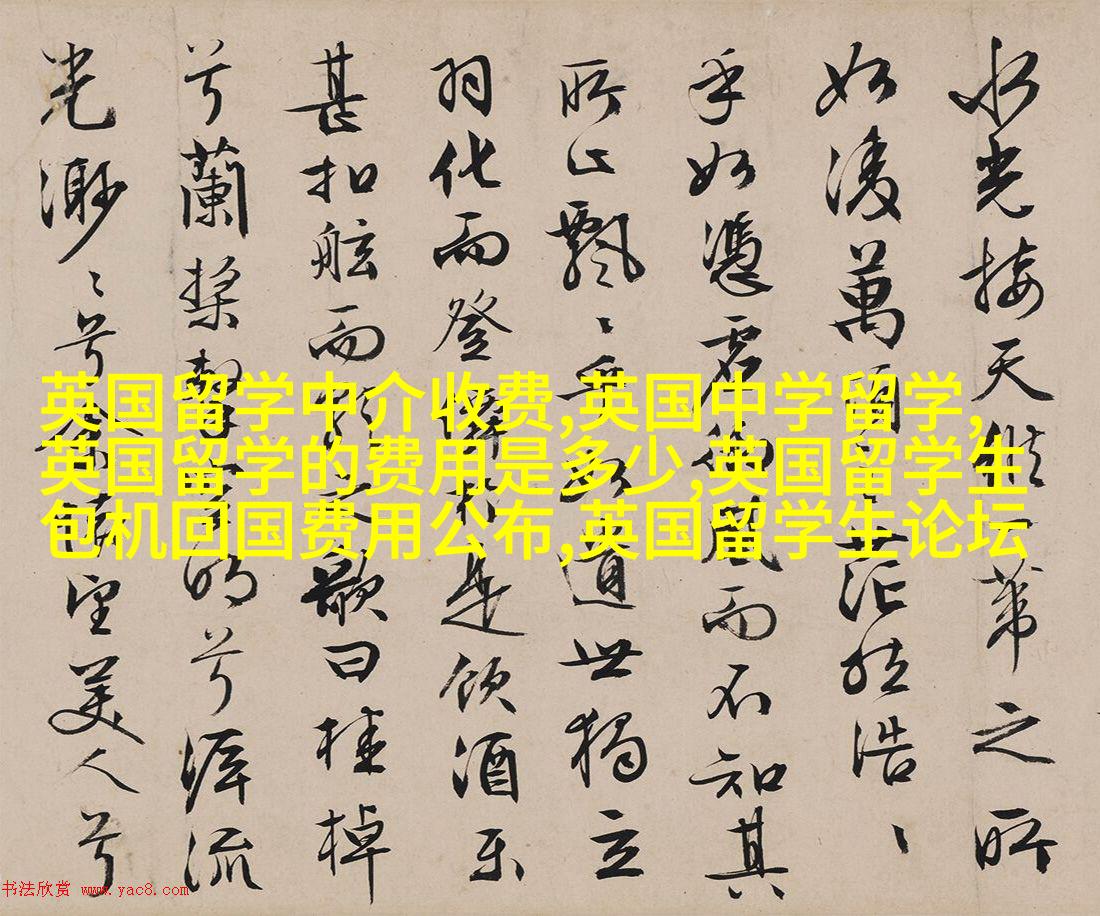 水光接天縱一葦之所
如凌萬頃之茫然浩〻
乎如憑虛御風而不知其
所止飄〻乎如遺世獨立
羽化而登僊於是飲酒樂
甚扣舷而歌之歌曰桂棹
兮蘭槳擊空明兮泝流
光渺〻兮余懷望美人兮
英国留学中介收费,英国中学留学,
英国留学的费用是多少,英国留学生
包机回国费用公布,英国留学生论坛
书法欣赏 www.yac8.com